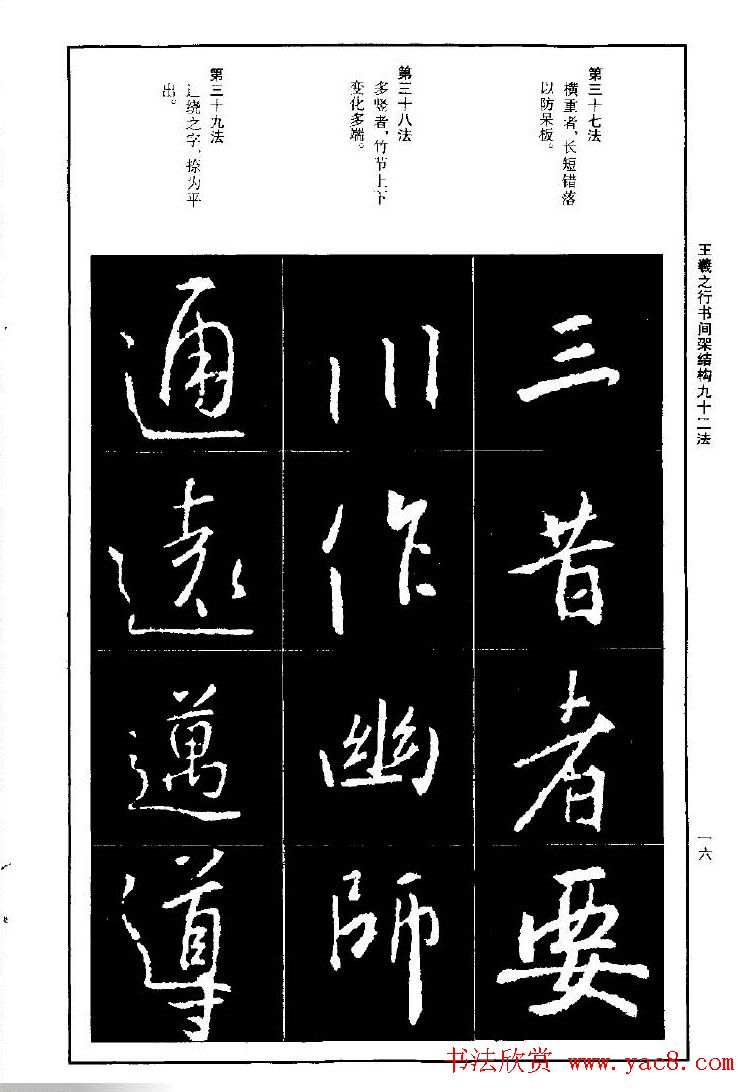 王羲之行书间架结构九十二法
第三十七法
横重者，长短错落
以防呆板。
第三十八法
多竖者，竹节上下
变化多端。
第三十九法
辶绕之字，捺为平
出。
三昔者要
川作幽師
通遠邁導
一六
书法欣赏 www.yac8.com